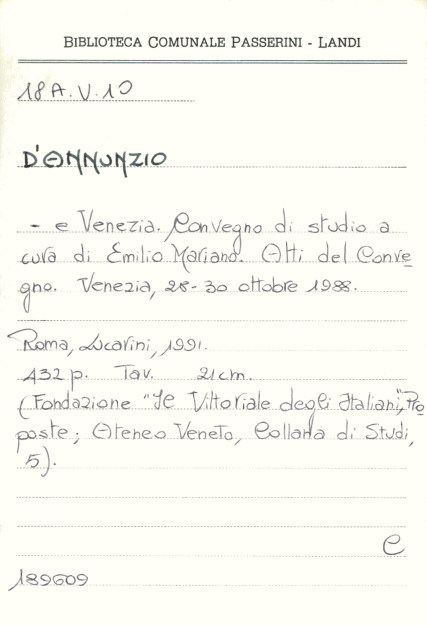 BIBLIOTECA COMUNALE PASSERINI - LANDI
18A.V.10
D'ANNUNZIO
- e Venezia. Convegno di studio a
cura di Emilio Mariano. Atti del Conve
gno. Venezia, 28-30 ottobre 1988.
Roma, Lucarini, 1991.
432 p. Tav. 21cm.
(Fondazione "Il Vittoriale degli Italiani", Pro
poste; Ateneo Veneto, Collana di Studi,
5).
C
189609